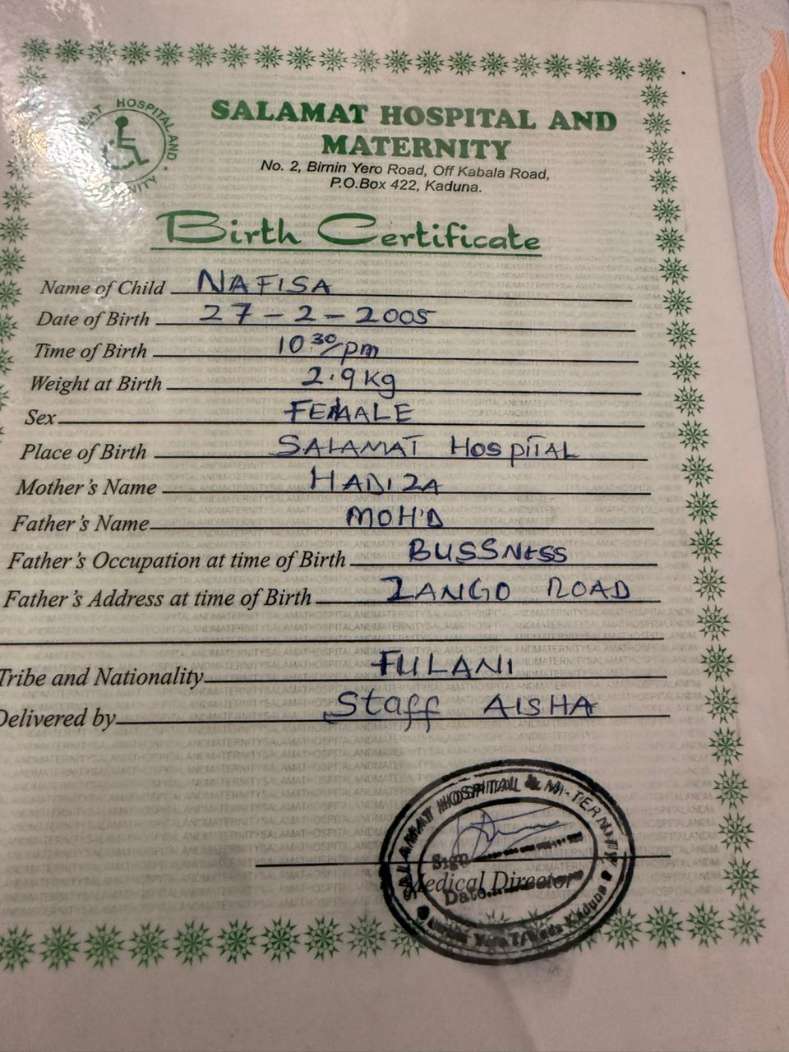 SALAMAT HOSPITAL AND
MATERNITY
No. 2, Birnin Yero Road, Off Kabala Road,
P.O.Box 422, Kaduna.
Birth Certificate
Name of Child NAFISA
Date of Birth 27-2-2005
Time of Birth 10 30/pm
Weight at Birth 2.9Kg
Sex FEMALE
Place of Birth SALAMAT HOSPITAL
Mother's Name HADIZA
Father's Name MOH'D
Father's Occupation at time of Birth BUSSNESS
Father's Address at time of Birth ZANGO ROAD
Tribe and Nationality FULANI
Delivered by Staff AISHA
SALAMAT HOSPITAL &
Sign
Medical Director
Date